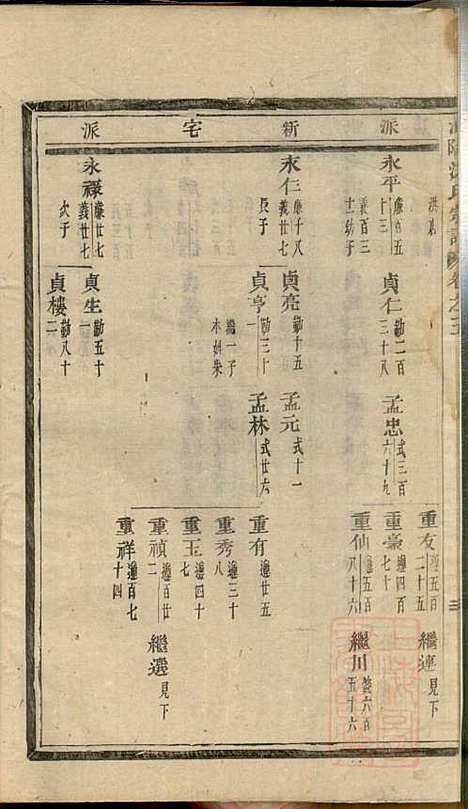 派 新 宅 派
洪嘉
永平 廉百五十三 義百三十一 幼子
貞仁 勤二百三十八
孟忠 式三百六十九
重友 遜五百二十五
繼連 見下
重豪 遜四百七十
重仙 遜五百八十六
繼川 養六百五十六
永仁 廉千八 義廿七 長子
貞亮 勤十五
孟元 式十一
貞亨 勤三十一 繼一子 本姓朱
孟林 式廿六
重有 遜廿五
重秀 遜三十八
重玉 遜四十七
重禎 遜百廿二
繼選 見下
重祥 遜百七十四
永祿 廉廿七 義廿七 次子
貞生 勤五十一
貞樓 勤八十二